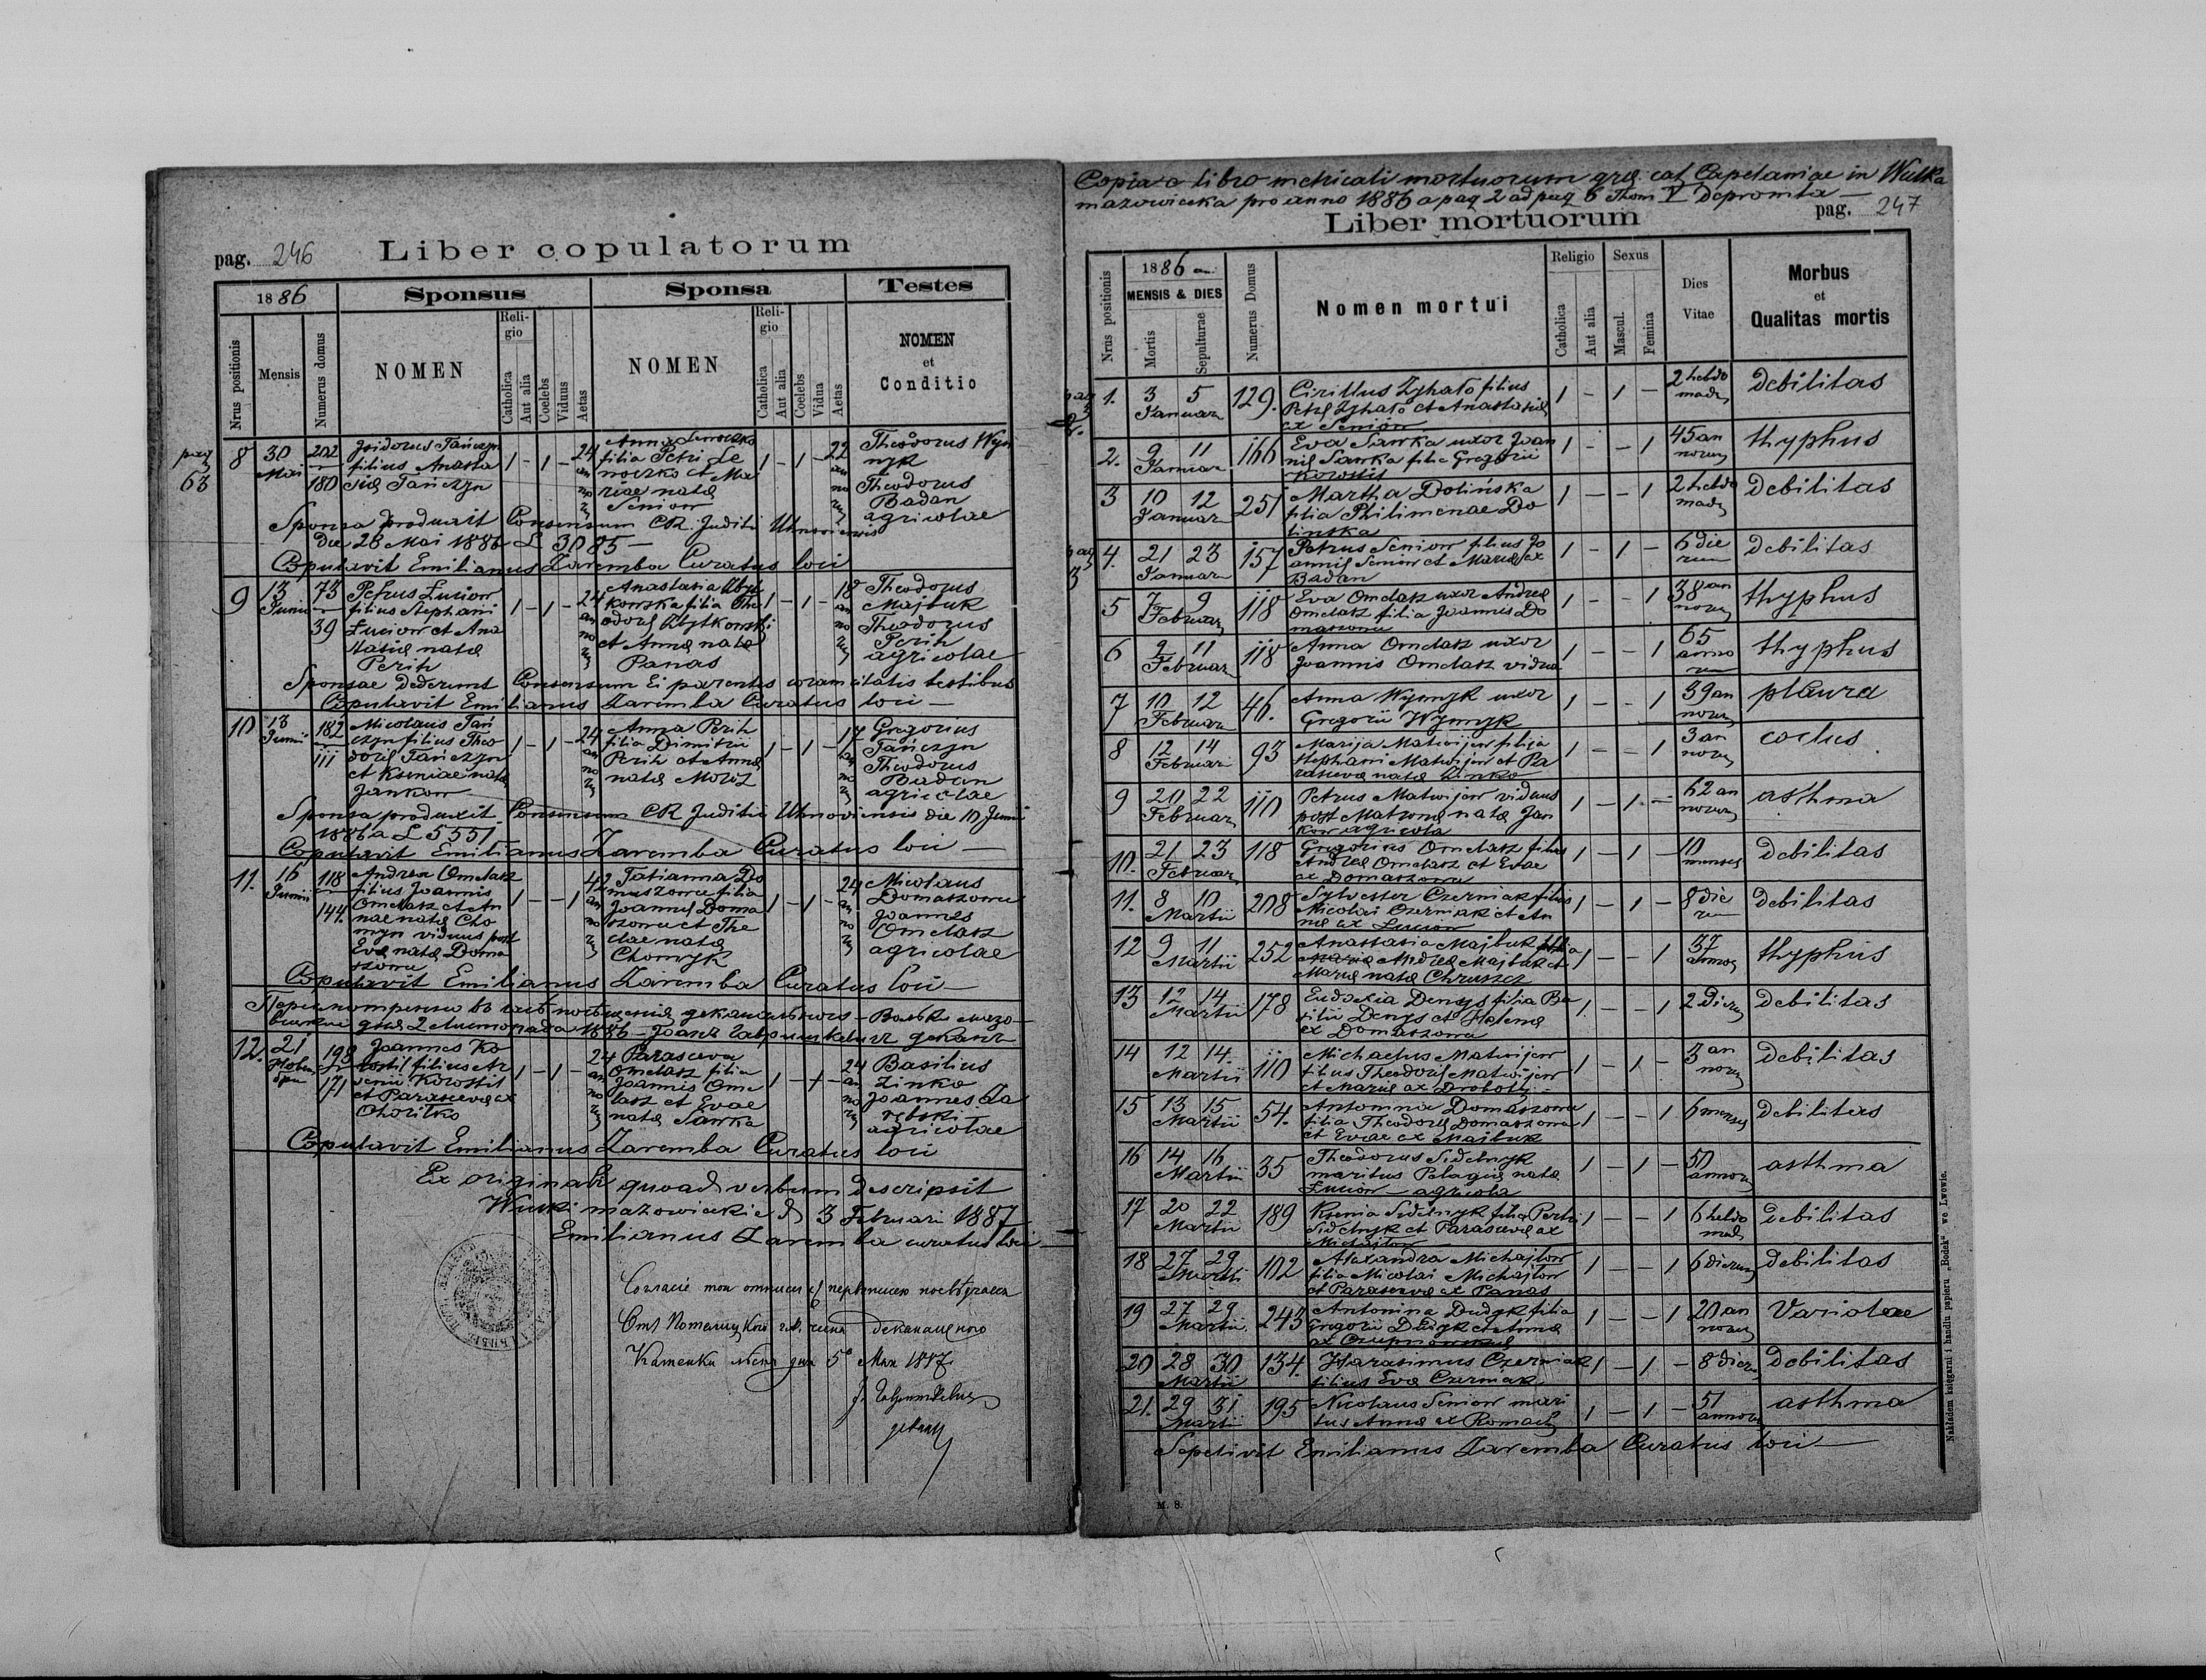 pag. 246 Liber copulatorum
1886 Sponsus Sponsa Testes
Nrus positionis Mensis Numerus domus NOMEN Religio Catholica Aut alia Coelebs Viduus Aetas NOMEN Religio Catholica Aut alia Coelebs Vidua Aetas NOMEN et Conditio
pag 63
8 30 Mai 202 180
Isidorus Tańczyn
filius Anasta
siæ Tańczyn
1 - 1 - 24 annorum
filia Petri Le
noczko et Ma
riae natæ
Seniow
1 - 1 - 22 annorum
Theodorus Wyn
nyk
Theodorus
Badan
agricolae
Sponsa produxit Consensum CR Juditii Uhnoviensis
Die 28 Mai 1886 L 3085 —
Copulavit Emilianus Zaremba Curatus loci
9 13 Junii 73 39
Petrus Łuciow
filius Stephani
Łuciow et Ana
stasiæ natæ
Perih
1 - 1 - 24 annorum
Anastasia
kowska filia The
odori
et Annæ natæ
Panas
1 - 1 - 18 annorum
Theodorus
Majbuk
Theodorus
Perih
agricolae
Sponsae dederunt Consensum Ei parentes coram citatis testibus
Copulavit Emilianus Zaremba Curatus loci —
10 13 Junii 182 111
Nicolaus Tań
czyn filius Theo
dori Tańczyn
et Kseniae natæ
Jankow
1 - 1 - 24 annorum
Anna Perih
filia Dimitrii
Perih et Annæ
natæ Moroz
1 - 1 - 17 annorum
Gregorius
Tańczyn
Theodorus
Badan
agricolae
Sponsa produxit Consensum CR Juditii Uhnoviensis die 10 Junii
1886 a L 5551 —
Copulavit Emilianus Zaremba Curatus loci —
11. 16 Junii 118 144.
Andreas Omelasz
filius Joannis
Omelasz et An
nae natæ Cho
myn viduus post
Evæ natæ Doma
szowa
1 - - 1 42 annorum
Tatianna Do
maszowa filia
Joannis Doma
szowa et The
clae natæ
Chomyk
1 - 1 - 24 annorum
Nicolaus
Domaszowa
Joannes
Omelasz
agricolae
Copulavit Emilianus Zaremba Curatus loci —
12. 21 198 171
Joannes Ko
rostil filius Ar
senii Korostil
et Parascevæ ex
Choritko
1 - 1 - 24 annorum
Parasceva
Omelasz filia
Joannis Ome
lasz et Evae
natæ Sawka
1 - 1 - 24 annorum
Basilius
Zinko
Joannes Za
rębski
agricolae
Copulavit Emilianus Zaremba Curatus loci
Ex originali quoad verbum descripsit
Wulki mazowieckie d 3 Februari 1887
Emilianus Zaremba curatus loci
Copia e libro metricali mortuorum gr. cat. Capelaniae in Wulka
mazowiecka pro anno 1886 a pag 2 ad pag 6 Thom V Depromta —
Liber mortuorum pag. 247
Nrus positionis 1886 MENSIS & DIES Mortis Sepulturae Numerus Domus Nomen mortui Religio Catholica Aut alia Sexus Mascul. Femina Dies Vitae Morbus et Qualitas mortis
pag 2.
1. 3 5 Januar 129. Cirillus Zyhało filius
Petri Zyhało et Anastasiæ
ex Seniow
1 - 1 - 2 hebdomadæ Debilitas
2. 9 11 Januar 166 Eva Sawka uxor Joan
nis Sawka filia Gregorii
Korostil
1 - - 1 45 annorum thyphus
3 10 12 Januar 251 Martha Dolińska
filia Philimenae Do
linska
1 - - 1 2 hebdomadæ Debilitas
pag 3
4. 21 23 Januar 157 Petrus Seniow filius Jo
annis Seniow et Mariæ ex
Badan
1 - 1 - 6 dierum Debilitas
5 7 9 Februar 118 Eva Omelasz uxor Andreæ
Omelasz filia Joannis Do
maszowa
1 - - 1 38 annorum thyphus
6 9 11 Februar 118 Anna Omelasz uxor
Joannis Omelasz vidua
1 - - 1 65 annorum thyphus
7 10 12 Februar 46. Anna Wynnyk uxor
Gregorii Wynnyk
1 - - 1 39 annorum plaura
8 12 14 Februar 93 Marija Matwijew filija
Stephani Matwijew et Pa
rascevæ natæ Zinko
1 - - 1 3 annorum coclus
9 20 22 Februar 110 Petrus Matwijew viduus
post Matronæ natæ Jan
kow agricola
1 - 1 - 62 annorum asthma
10. 21 23 Februar 118 Gregorius Omelasz filius
Andreæ Omelasz et Evae
ex Domaszowa
1 - 1 - 10 menses Debilitas
11. 8 10 Martii 208 Sylvester Czerniak filius
Nicolai Czerniak et An
næ ex Łuciow
1 - 1 - 8 dierum Debilitas
12 9 11 Martii 252 Anastasia Majbuk filia
Andreæ Majbuk et
Mariæ natæ Chruszcz
1 - - 1 37 annos thyphus
13 12 14 Martii 178 Eudoxia Denys filia Ba
silii Denys et Helenæ
ex Domaszowa
1 - - 1 2 Dierum Debilitas
14 12 14 Martii 110 Michaelus Matwijew
filius Theodori Matwijew
et Mariæ ex Drobotij
1 - 1 - 3 annorum Debilitas
15 13 15 Martii 54. Antonina Domaszowa
filia Theodori Domaszowa
et Evae ex Majbuk
1 - - 1 6 menses Debilitas
16 14 16 Martii 35 Theodorus Sidelnyk
maritus Pelagiæ natæ
Łuciow — agricola
1 - 1 - 50 annorum asthma
17 20 22 Martii 189 Ksenia Sidelnyk filia Petri
Sidelnyk et Parascevæ ex
Michajlow
1 - - 1 6 hebdomad Debilitas
18 27 29 Martii 102 Alexandra Michajlow
filia Nicolai Michajlow
et Parascevæ ex Panas
1 - - 1 6 dierum Debilitas
19 27 29 Martii 243 Antonina Dudyk filia
Gregorii Dudyk et Annæ
1 - - 1 20 annorum Variolae
20 28 30 Martii 134. Harasimus Czerniak
filius Evæ Czerniak
1 - 1 - 8 dierum Debilitas
21. 29 31 Martii 195 Nicolaus Seniow mari
tus Annæ ex Romach
1 - 1 - 51 annorum asthma
Sepelivit Emilianus Zaremba Curatus loci —
M. 8.
Nakładem księgarni i handlu papieru „Bodek" we Lwowie.